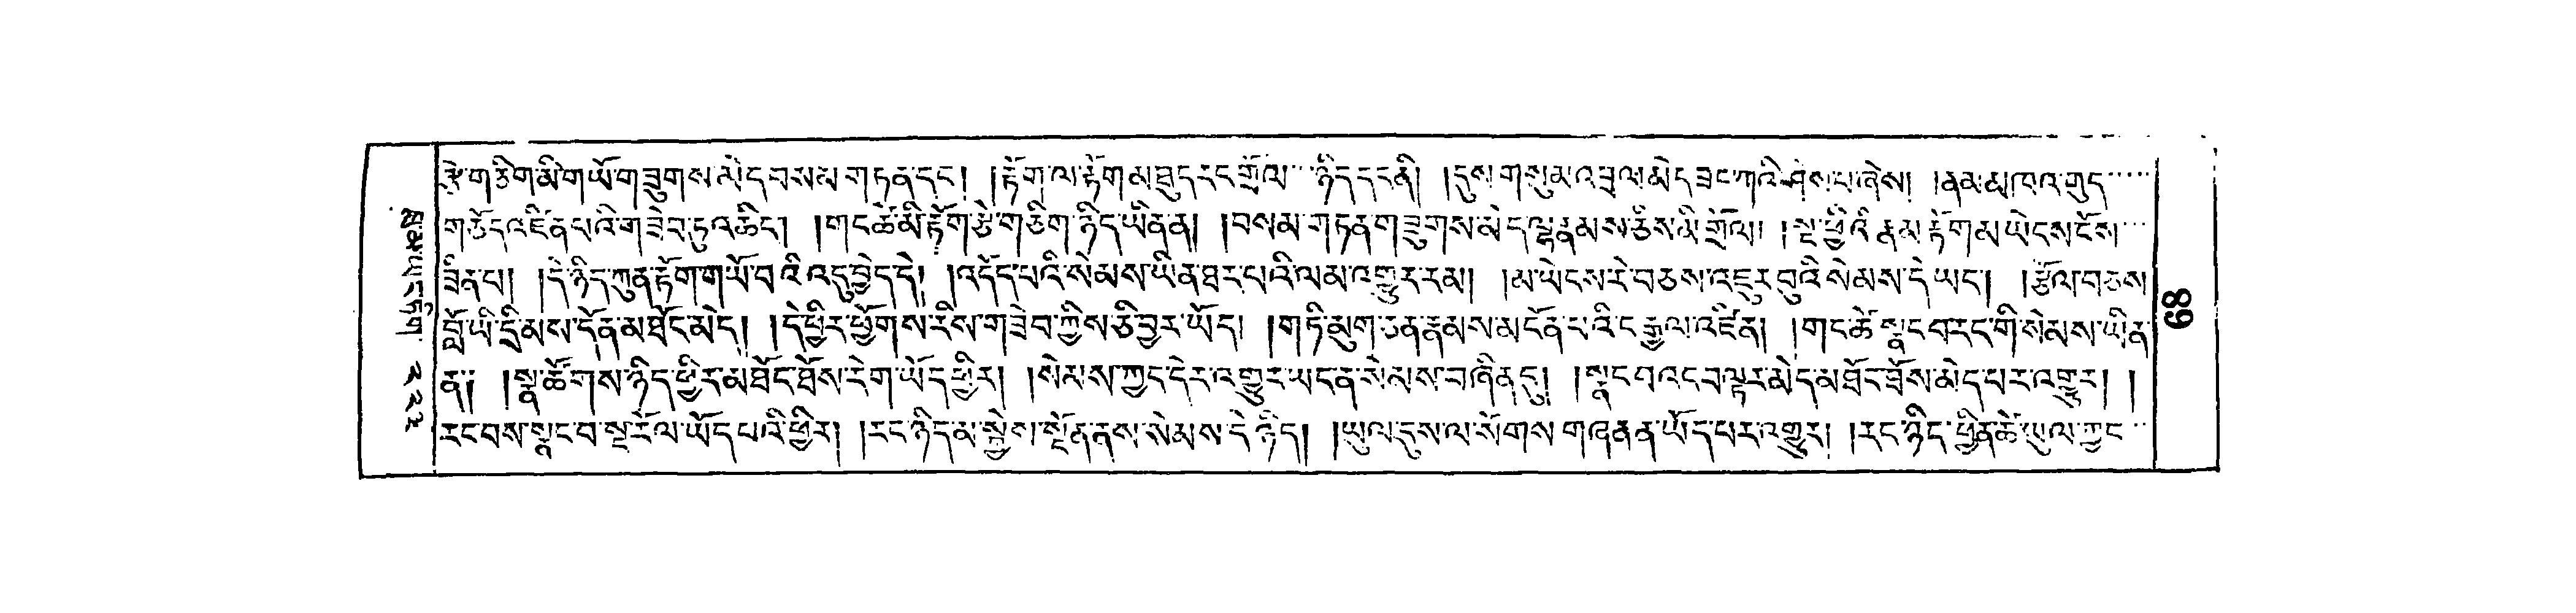 ཙེ་གཅིག་མི་གཡོ་གཟུགས་མེད་བསམ་གཏན་དང་། །རྟོག་ལ་རྟོག་མ་ཐུད་རང་གྲོལ་་་ཉིད་དང་ནི། །དུས་གསུམ་འབྲལ་མེད་ཟང་ཀའི་ཤེས་པ་ཞེས། །ནམ་མཁའ་གུད་་་་་
གཅོད་འཛིན་པའི་གཟེབ་ཏུ་འཆིང་། །གང་ཚེ་མི་རྟོག་རྩེ་གཅིག་ཉིད་ཡིན་ན། །བསམ་གཏན་གཟུགས་མེད་ལྷ་རྣམས་ཅིས་མི་གྲོལ། །སྔ་ཕྱིའི་རྣམ་རྟོག་མ་ཡེངས་ངོས་་་་
ཟིན་པ། །དེ་ཉིད་ཀུན་རྟོག་གཡོ་བའི་འདུ་བྱེད་དེ། །འདོད་པའི་སེམས་ཡིན་ཐར་པའི་ལམ་འགྱུར་རམ། །མ་ཡེངས་རེ་བཅས་འཇུར་བུའི་སེམས་དེ་ཡང་། །རྩོལ་བཅས
བློ་ཡི་དྲི་མས་དོན་མཐོང་མེད། །དེ་ཕྱིར་ཕྱོགས་རིས་གཟེབ་ཀྱིས་ཅི་བྱར་ཡོད། །གཏི་མུག་ཅན་རྣམས་མངོན་པའི་ང་རྒྱལ་འཛིན། །གང་ཚེ་སྣང་བ་རང་གི་སེམས་ཡིན་
ན༑ །སྣ་ཚོགས་ཉིད་ཕྱིར་མཐོང་ཐོས་རེག་ཡོད་ཕྱིར། །སེམས་ཀྱང་དེར་འགྱུར་ཡང་ན་སེམས་བཞིན་དུ། །སྣང་བའང་བལྟར་མེད་མཐོང་ཐོས་མེད་པར་འགྱུར། །
རང་བས་སྣང་བ་སྔ་རོལ་ཡོད་པའི་ཕྱིར། །རང་ཉིད་མ་སྐྱེས་སྔོན་ནས་སེམས་དེ་ཉིད། །ཡུལ་དུས་ལ་སོགས་གཞན་ན་ཡོད་པར་འགྱུར། །རང་ཉིད་ཕྱིན་ཚེ་ཡུལ་ཀྱང་་་